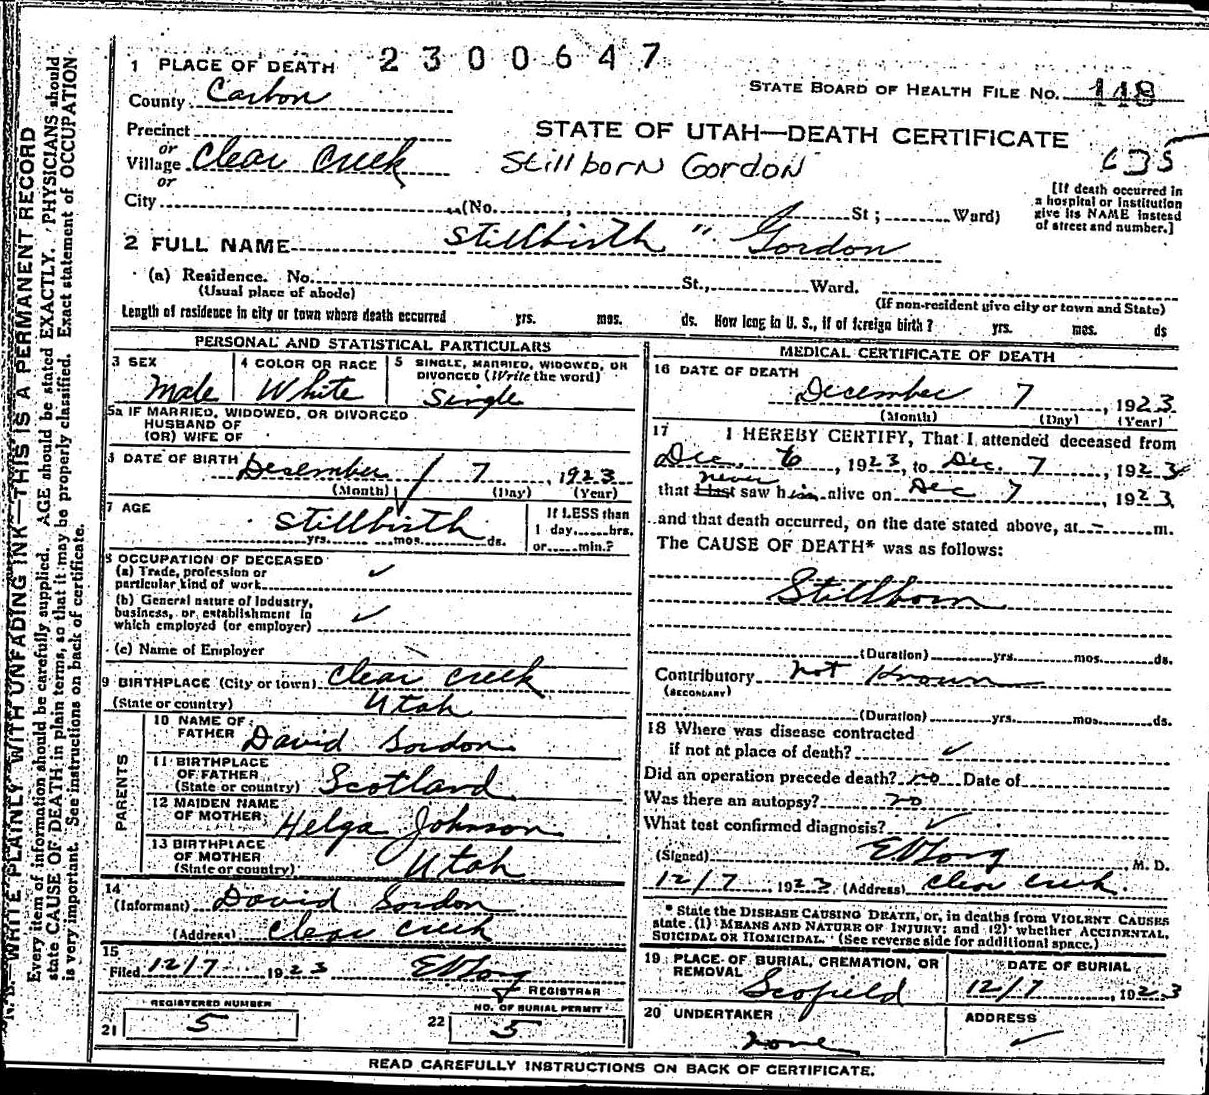 2300647
1 PLACE OF DEATH
STATE BOARD OF HEALTH FILE No. 148
County Carbon
STATE OF UTAH—DEATH CERTIFICATE
Precinct
or
Village Clear Creek
Stillborn Gordon
or
[If death occurred in a hospital or institution give its NAME instead of street and number.]
City (No. , St; Ward)
2 FULL NAME Stillbirth " Gordon
(a) Residence. No. St., Ward.
(Usual place of abode) (If non-resident give city or town and State)
Length of residence in city or town where death occurred yrs. mos. ds. How long in U. S., if of foreign birth? yrs. mos. ds
PERSONAL AND STATISTICAL PARTICULARS
3 SEX Male
4 COLOR OR RACE White
5 SINGLE, MARRIED, WIDOWED, OR DIVORCED (Write the word) Single
5a IF MARRIED, WIDOWED, OR DIVORCED
HUSBAND OF
(OR) WIFE OF
6 DATE OF BIRTH December 7, 1923
(Month) (Day) (Year)
7 AGE Stillbirth
yrs. mos. ds.
If LESS than
1 day, hrs.
or min.?
8 OCCUPATION OF DECEASED
(a) Trade, profession or
particular kind of work
(b) General nature of Industry,
business, or establishment in
which employed (or employer)
(c) Name of Employer
9 BIRTHPLACE (City or town) Clear Creek
(State or country) Utah
PARENTS
10 NAME OF FATHER David Gordon
11 BIRTHPLACE OF FATHER (State or country) Scotland
12 MAIDEN NAME OF MOTHER Helga Johnson
13 BIRTHPLACE OF MOTHER (State or country) Utah
14
(Informant) David Gordon
(Address) Clear Creek
15
Filed 12/7 1923
REGISTRAR
REGISTERED NUMBER
21 5
NO. OF BURIAL PERMIT
22 5
MEDICAL CERTIFICATE OF DEATH
16 DATE OF DEATH
December 7, 1923
(Month) (Day) (Year)
17 I HEREBY CERTIFY, That I attended deceased from
Dec. 6, 1923, to Dec. 7, 1923
never
that I last saw him alive on Dec 7, 1923,
and that death occurred, on the date stated above, at - m.
The CAUSE OF DEATH* was as follows:
Stillborn
(Duration) yrs. mos. ds.
Contributory not Known
(SECONDARY)
(Duration) yrs. mos. ds.
18 Where was disease contracted
if not at place of death?
Did an operation precede death? no Date of
Was there an autopsy? no
What test confirmed diagnosis?
(Signed) M. D.
12/7 1923 (Address) Clear Creek.
* State the DISEASE CAUSING DEATH, or, in deaths from VIOLENT CAUSES
state (1) MEANS AND NATURE OF INJURY; and (2) whether ACCIDENTAL,
SUICIDAL OR HOMICIDAL. (See reverse side for additional space.)
19 PLACE OF BURIAL, CREMATION, OR REMOVAL Scofield
DATE OF BURIAL
12/7, 1923
20 UNDERTAKER
none
ADDRESS
READ CAREFULLY INSTRUCTIONS ON BACK OF CERTIFICATE.
N. B. WRITE PLAINLY WITH UNFADING INK—THIS IS A PERMANENT RECORD
Every item of information should be carefully supplied. AGE should be stated EXACTLY. PHYSICIANS should
state CAUSE OF DEATH in plain terms, so that it may be properly classified. Exact statement of OCCUPATION
is very important. See instructions on back of certificate.